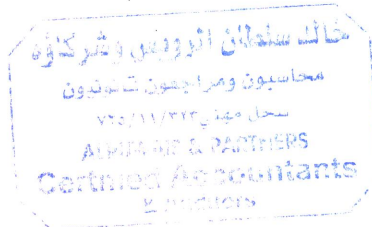 خالد سلطان الرويس وشركاؤه
محاسبون ومراجعون قانونيون
سجل مهني ٧٦٥/١١/٣٢٣
& PARTNERS
Certified Accountants